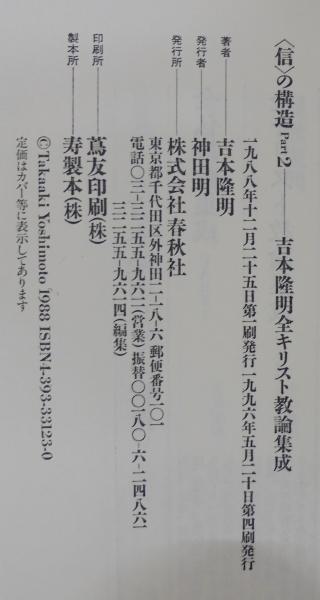 〈信〉の構造 Part 2──吉本隆明全キリスト教論集成
一九八八年十二月二十五日第一刷発行 一九九六年五月二十日第四刷発行
著者──吉本隆明
発行者──神田明
発行所──株式会社春秋社
東京都千代田区外神田二-一八-六 郵便番号一〇一
電話〇三-三二五五-九六一一(営業) 振替〇〇一八〇-六-二四八六一
三二五五-九六一四(編集)
印刷所──蔦友印刷(株)
製本所──寿製本(株)
©Takaaki Yoshimoto 1988 ISBN4-393-33123-0
定価はカバー等に表示してあります